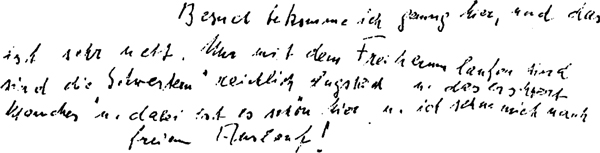 Besuch bekomme ich genug hier, und das
ist sehr nett. Nur mit dem Freiherum laufen sind
sind die "Schwestern" reichlich ängstlich u. das erschwert
Manches u. dabei ist es schön hier u. ich sehne mich nach
freiem Auslauf!